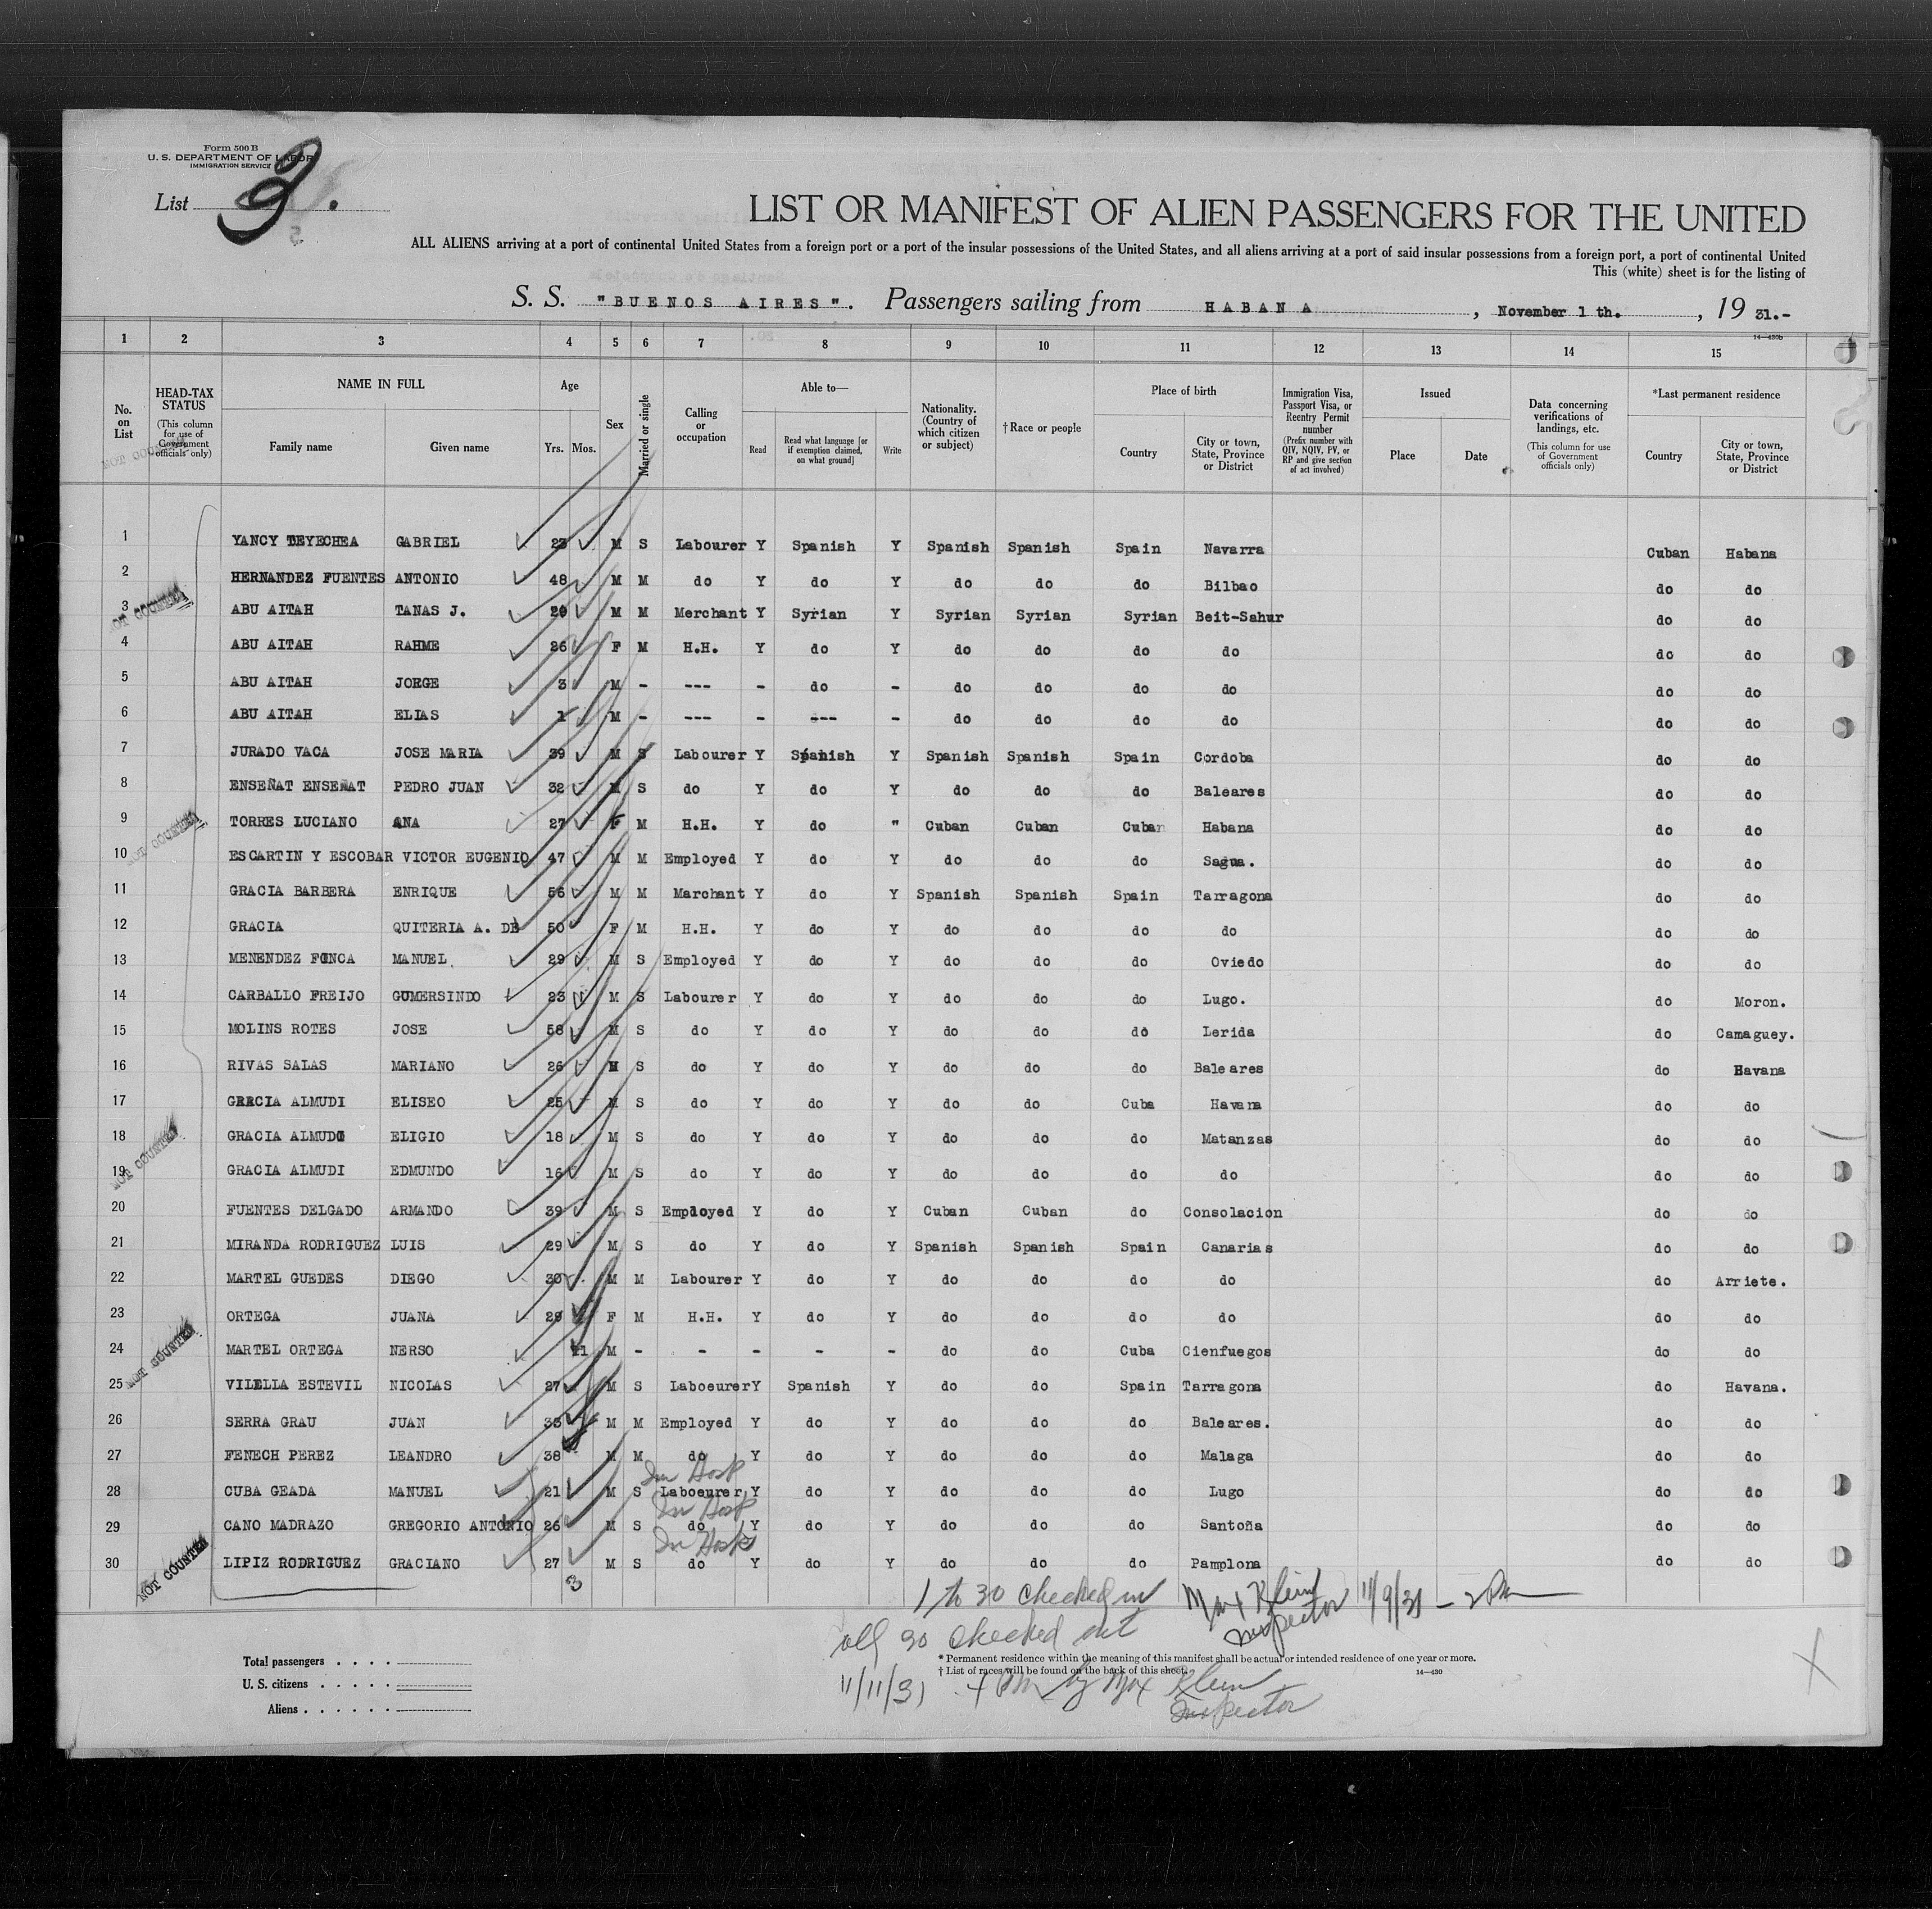 Form 500 B
U. S. DEPARTMENT OF LABOR
IMMIGRATION SERVICE
List 3.
LIST OR MANIFEST OF ALIEN PASSENGERS FOR THE UNITED
ALL ALIENS arriving at a port of continental United States from a foreign port or a port of the insular possessions of the United States, and all aliens arriving at a port of said insular possessions from a foreign port, a port of continental United
This (white) sheet is for the listing of
S. S. "BUENOS AIRES". Passengers sailing from HABANA, November 1 th., 19 31.-
14—430b
1 2 3 4 5 6 7 8 9 10 11 12 13 14 15
No. on List
HEAD-TAX STATUS (This column for use of Government officials only)
NAME IN FULL
Family name Given name
Age
Yrs. Mos.
Sex
Married or single
Calling or occupation
Able to—
Read Read what language [or if exemption claimed, on what ground] Write
Nationality. (Country of which citizen or subject)
† Race or people
Place of birth
Country City or town, State, Province or District
Immigration Visa, Passport Visa, or Reentry Permit number (Prefix number with QIV, NQIV, PV, or RP and give section of act involved)
Issued
Place Date
Data concerning verifications of landings, etc. (This column for use of Government officials only)
*Last permanent residence
Country City or town, State, Province or District
NOT COUNTED
1 YANCY TEYECHEA GABRIEL 23 M S Labourer Y Spanish Y Spanish Spanish Spain Navarra Cuban Habana
2 HERNANDEZ FUENTES ANTONIO 48 M M do Y do Y do do do Bilbao do do
3 ABU AITAH TANAS J. 29 M M Merchant Y Syrian Y Syrian Syrian Syrian Beit-Sahur do do
NOT COUNTED
4 ABU AITAH RAHME 26 F M H.H. Y do Y do do do do do do
5 ABU AITAH JORGE 3 M - --- - do - do do do do do do
6 ABU AITAH ELIAS 1 M - --- - --- - do do do do do do
7 JURADO VACA JOSE MARIA 39 M S Labourer Y Spanish Y Spanish Spanish Spain Cordoba do do
8 ENSEÑAT ENSEÑAT PEDRO JUAN 32 M S do Y do Y do do do Baleares do do
9 TORRES LUCIANO ANA 27 F M H.H. Y do " Cuban Cuban Cuban Habana do do
NOT COUNTED
10 ESCARTIN Y ESCOBAR VICTOR EUGENIO 47 M M Employed Y do Y do do do Sagua. do do
11 GRACIA BARBERA ENRIQUE 56 M M Marchant Y do Y Spanish Spanish Spain Tarragona do do
12 GRACIA QUITERIA A. DE 50 F M H.H. Y do Y do do do do do do
13 MENENDEZ FONCA MANUEL 29 M S Employed Y do Y do do do Oviedo do do
14 CARBALLO FREIJO GUMERSINDO 23 M S Labourer Y do Y do do do Lugo. do Moron.
15 MOLINS ROTES JOSE 58 M S do Y do Y do do do Lerida do Camaguey.
16 RIVAS SALAS MARIANO 26 M S do Y do Y do do do Baleares do Havana
17 GRACIA ALMUDI ELISEO 25 M S do Y do Y do do Cuba Havana do do
18 GRACIA ALMUDI ELIGIO 18 M S do Y do Y do do do Matanzas do do
NOT COUNTED
19 GRACIA ALMUDI EDMUNDO 16 M S do Y do Y do do do do do do
20 FUENTES DELGADO ARMANDO 39 M S Employed Y do Y Cuban Cuban do Consolacion do do
21 MIRANDA RODRIGUEZ LUIS 29 M S do Y do Y Spanish Spanish Spain Canarias do do
22 MARTEL GUEDES DIEGO 30 M M Labourer Y do Y do do do do do Arriete.
23 ORTEGA JUANA 29 F M H.H. Y do Y do do do do do do
24 MARTEL ORTEGA NERSO 11 M - - - - - do do Cuba Cienfuegos do do
NOT COUNTED
25 VILELLA ESTEVIL NICOLAS 27 M S Laboeurer Y Spanish Y do do Spain Tarragona do Havana.
26 SERRA GRAU JUAN 35 M M Employed Y do Y do do do Baleares. do do
27 FENECH PEREZ LEANDRO 38 M M do Y do Y do do do Malaga do do
In Hosp
28 CUBA GEADA MANUEL 21 M S Laboeurer Y do Y do do do Lugo do do
In Hosp
29 CANO MADRAZO GREGORIO ANTONIO 26 M S do Y do Y do do do Santoña do do
In Hosp
30 LIPIZ RODRIGUEZ GRACIANO 27 M S do Y do Y do do do Pamplona do do
NOT COUNTED
3
1 to 30 checked in Max Klein Inspector 11/9/31 - 2 PM
all 30 checked out
11/11/31 4 PM by Max Klein
Inspector
Total passengers . . . .
U. S. citizens . . . . .
Aliens . . . . . .
* Permanent residence within the meaning of this manifest shall be actual or intended residence of one year or more.
† List of races will be found on the back of this sheet.
14—430
X